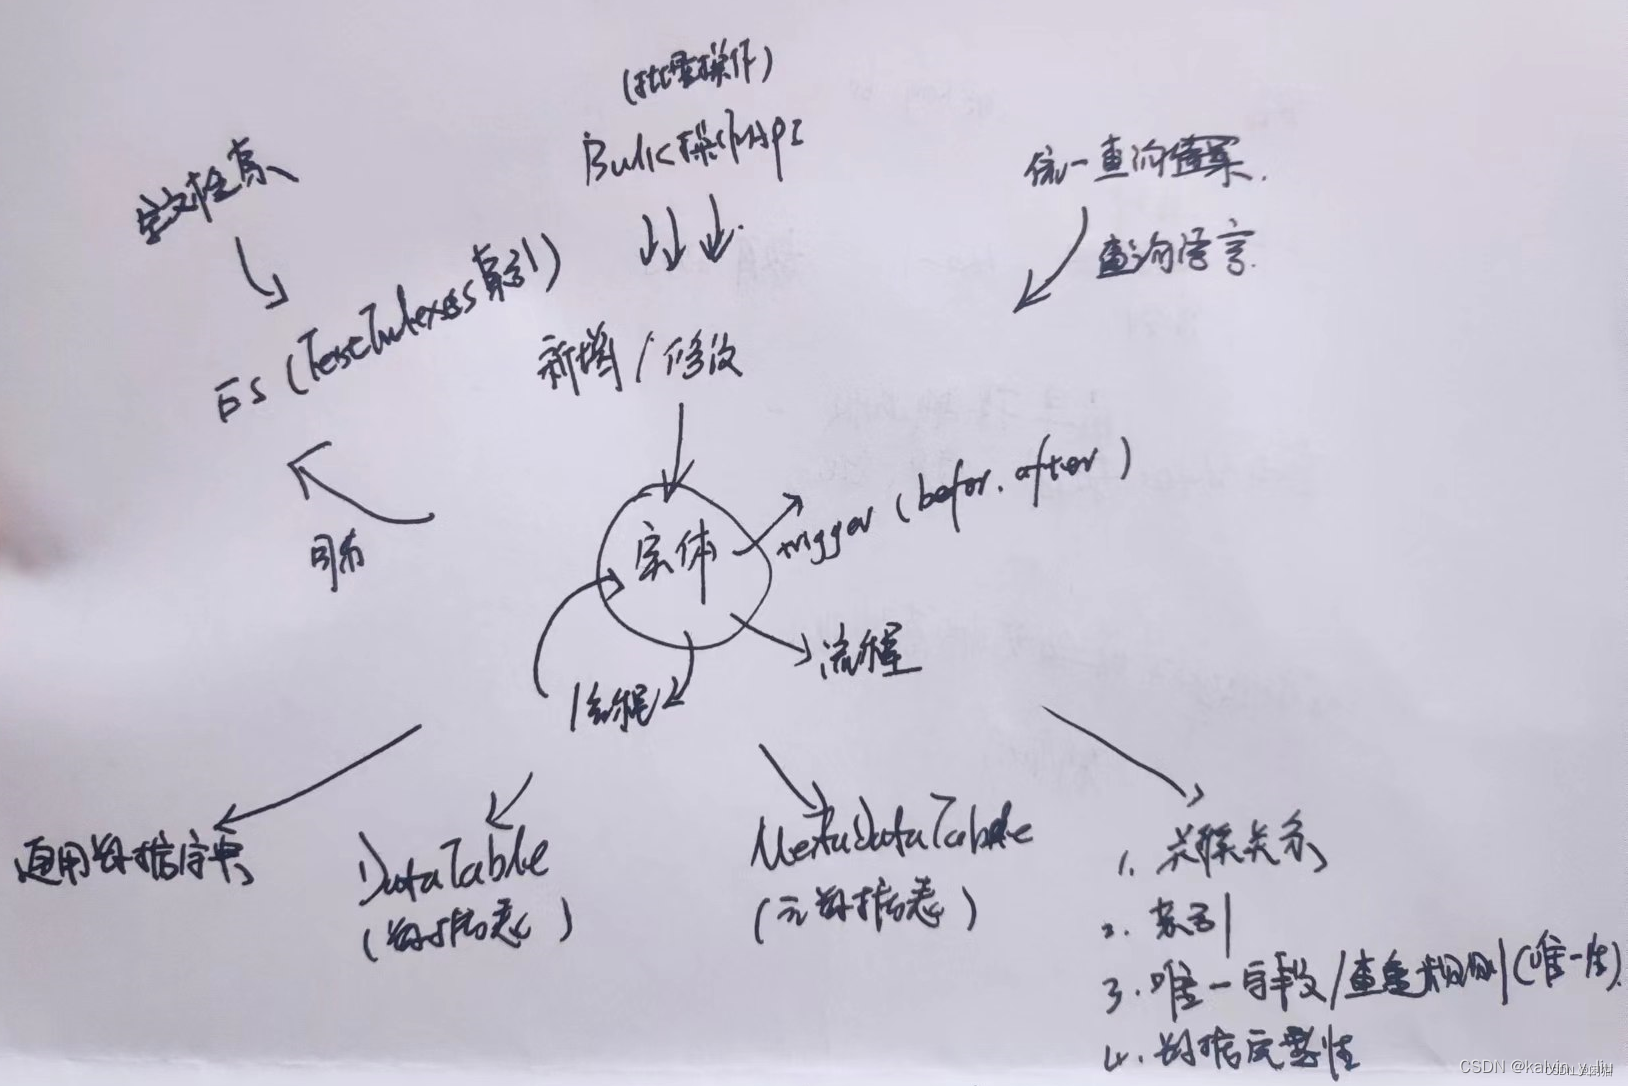 (批量操作)
Bulk操作API
全文检索
统一查询搜索.
查询语言.
ES (TextIndexes索引)
新增/修改
实体
trigger (befor. after)
异布
流程
通用数据字典
DataTable
(数据表)
MetaDataTable
(元数据表)
1. 关联关系
2. 索引
3. 唯一字段/查重规则(唯一性).
4. 数据完整性
CSDN @kalvin_y_liu